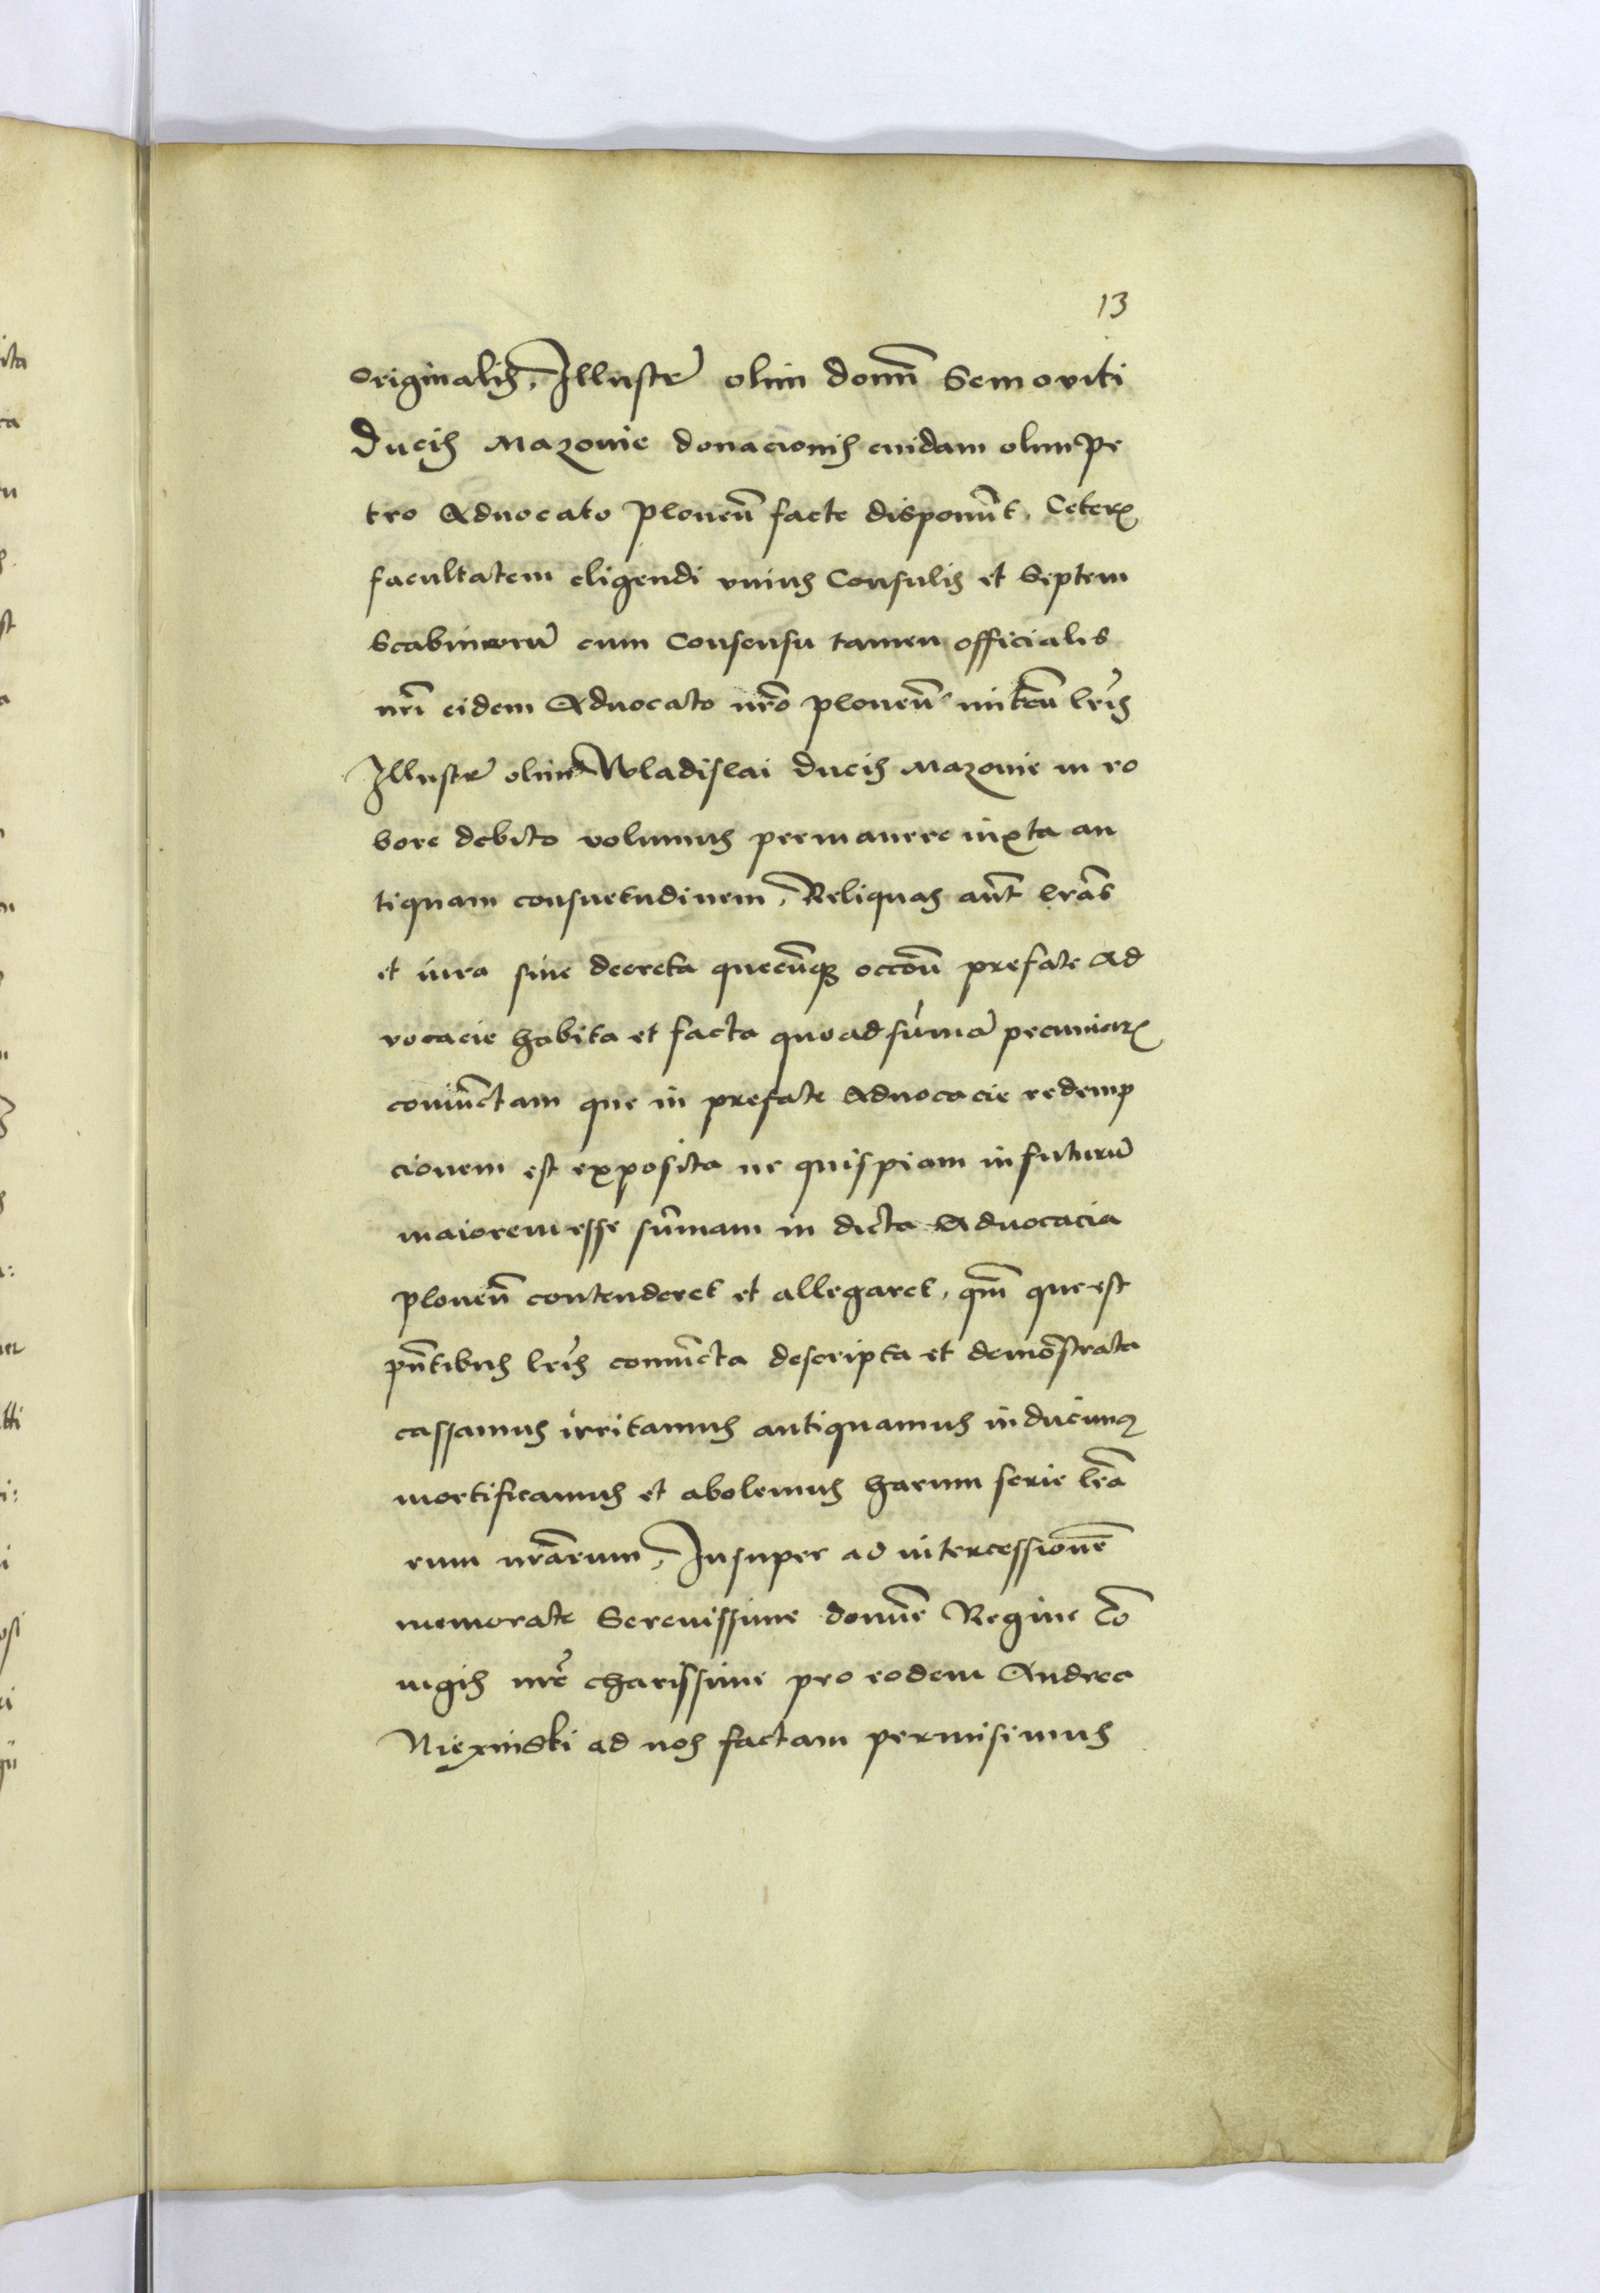 13
originalis, Illustr̄ olim domī Semoviti
Ducis Mazovie donacionis cuidam olim Pe
tro Advocato Plonen̄ facte disponūt. Ceterꝝ
facultatem eligendi vnius Consulis et Septem
Scabinorū cum Consensu tamen officialis
nrī eidem Advocato nrō plonen̄
Illustr̄ olim Wladislai Ducis Mazovie in ro
bore debito volumus permanere iuxta an
tiquam consuetudinem, Reliquas aūt lrās
et iura sive decreta quecūqꝫ occōn̄ prefate Ad
vocacie habita et facta quoad sūmā pecuniarꝝ
coniūctam que in prefate Advocacie redemp
cionem est exposita ne quispiam in futurū
maiorem esse sūmam in dicta Advocacia
plonen̄ contenderet et allegaret, qm̄ que est
pn̄tibus lrīs coniūcta descripta et demōstrata
cassamus irritamus antiquamus inducimꝰ
mortificamus et abolemus harum serie lrā
rum nrārum, Insuper ad intercessionē
memorate Serenissime domnē Regine Cō
iugis nrē charissime pro eodem Andrea
Niexinski ad nos factam permisimus